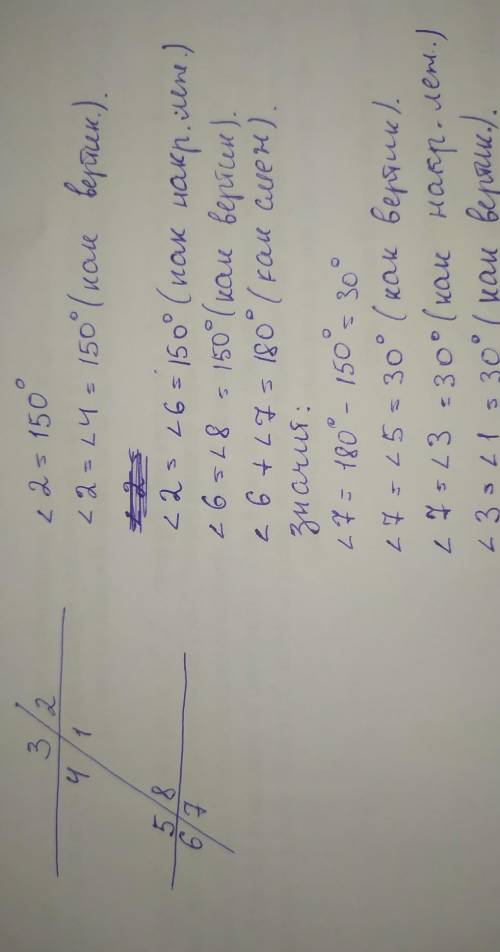 3 2
4 1
5 8
6 7
∠2 = 150°
∠2 = ∠4 = 150° (как вертик.).
∠2 = ∠6 = 150° (как накр. леж.)
∠6 = ∠8 = 150° (как вертик).
∠6 + ∠7 = 180° (как смеж).
значит:
∠7 = 180° - 150° = 30°
∠7 = ∠5 = 30° (как вертик).
∠7 = ∠3 = 30° (как накр. леж.)
∠3 = ∠1 = 30° (как вертик.).